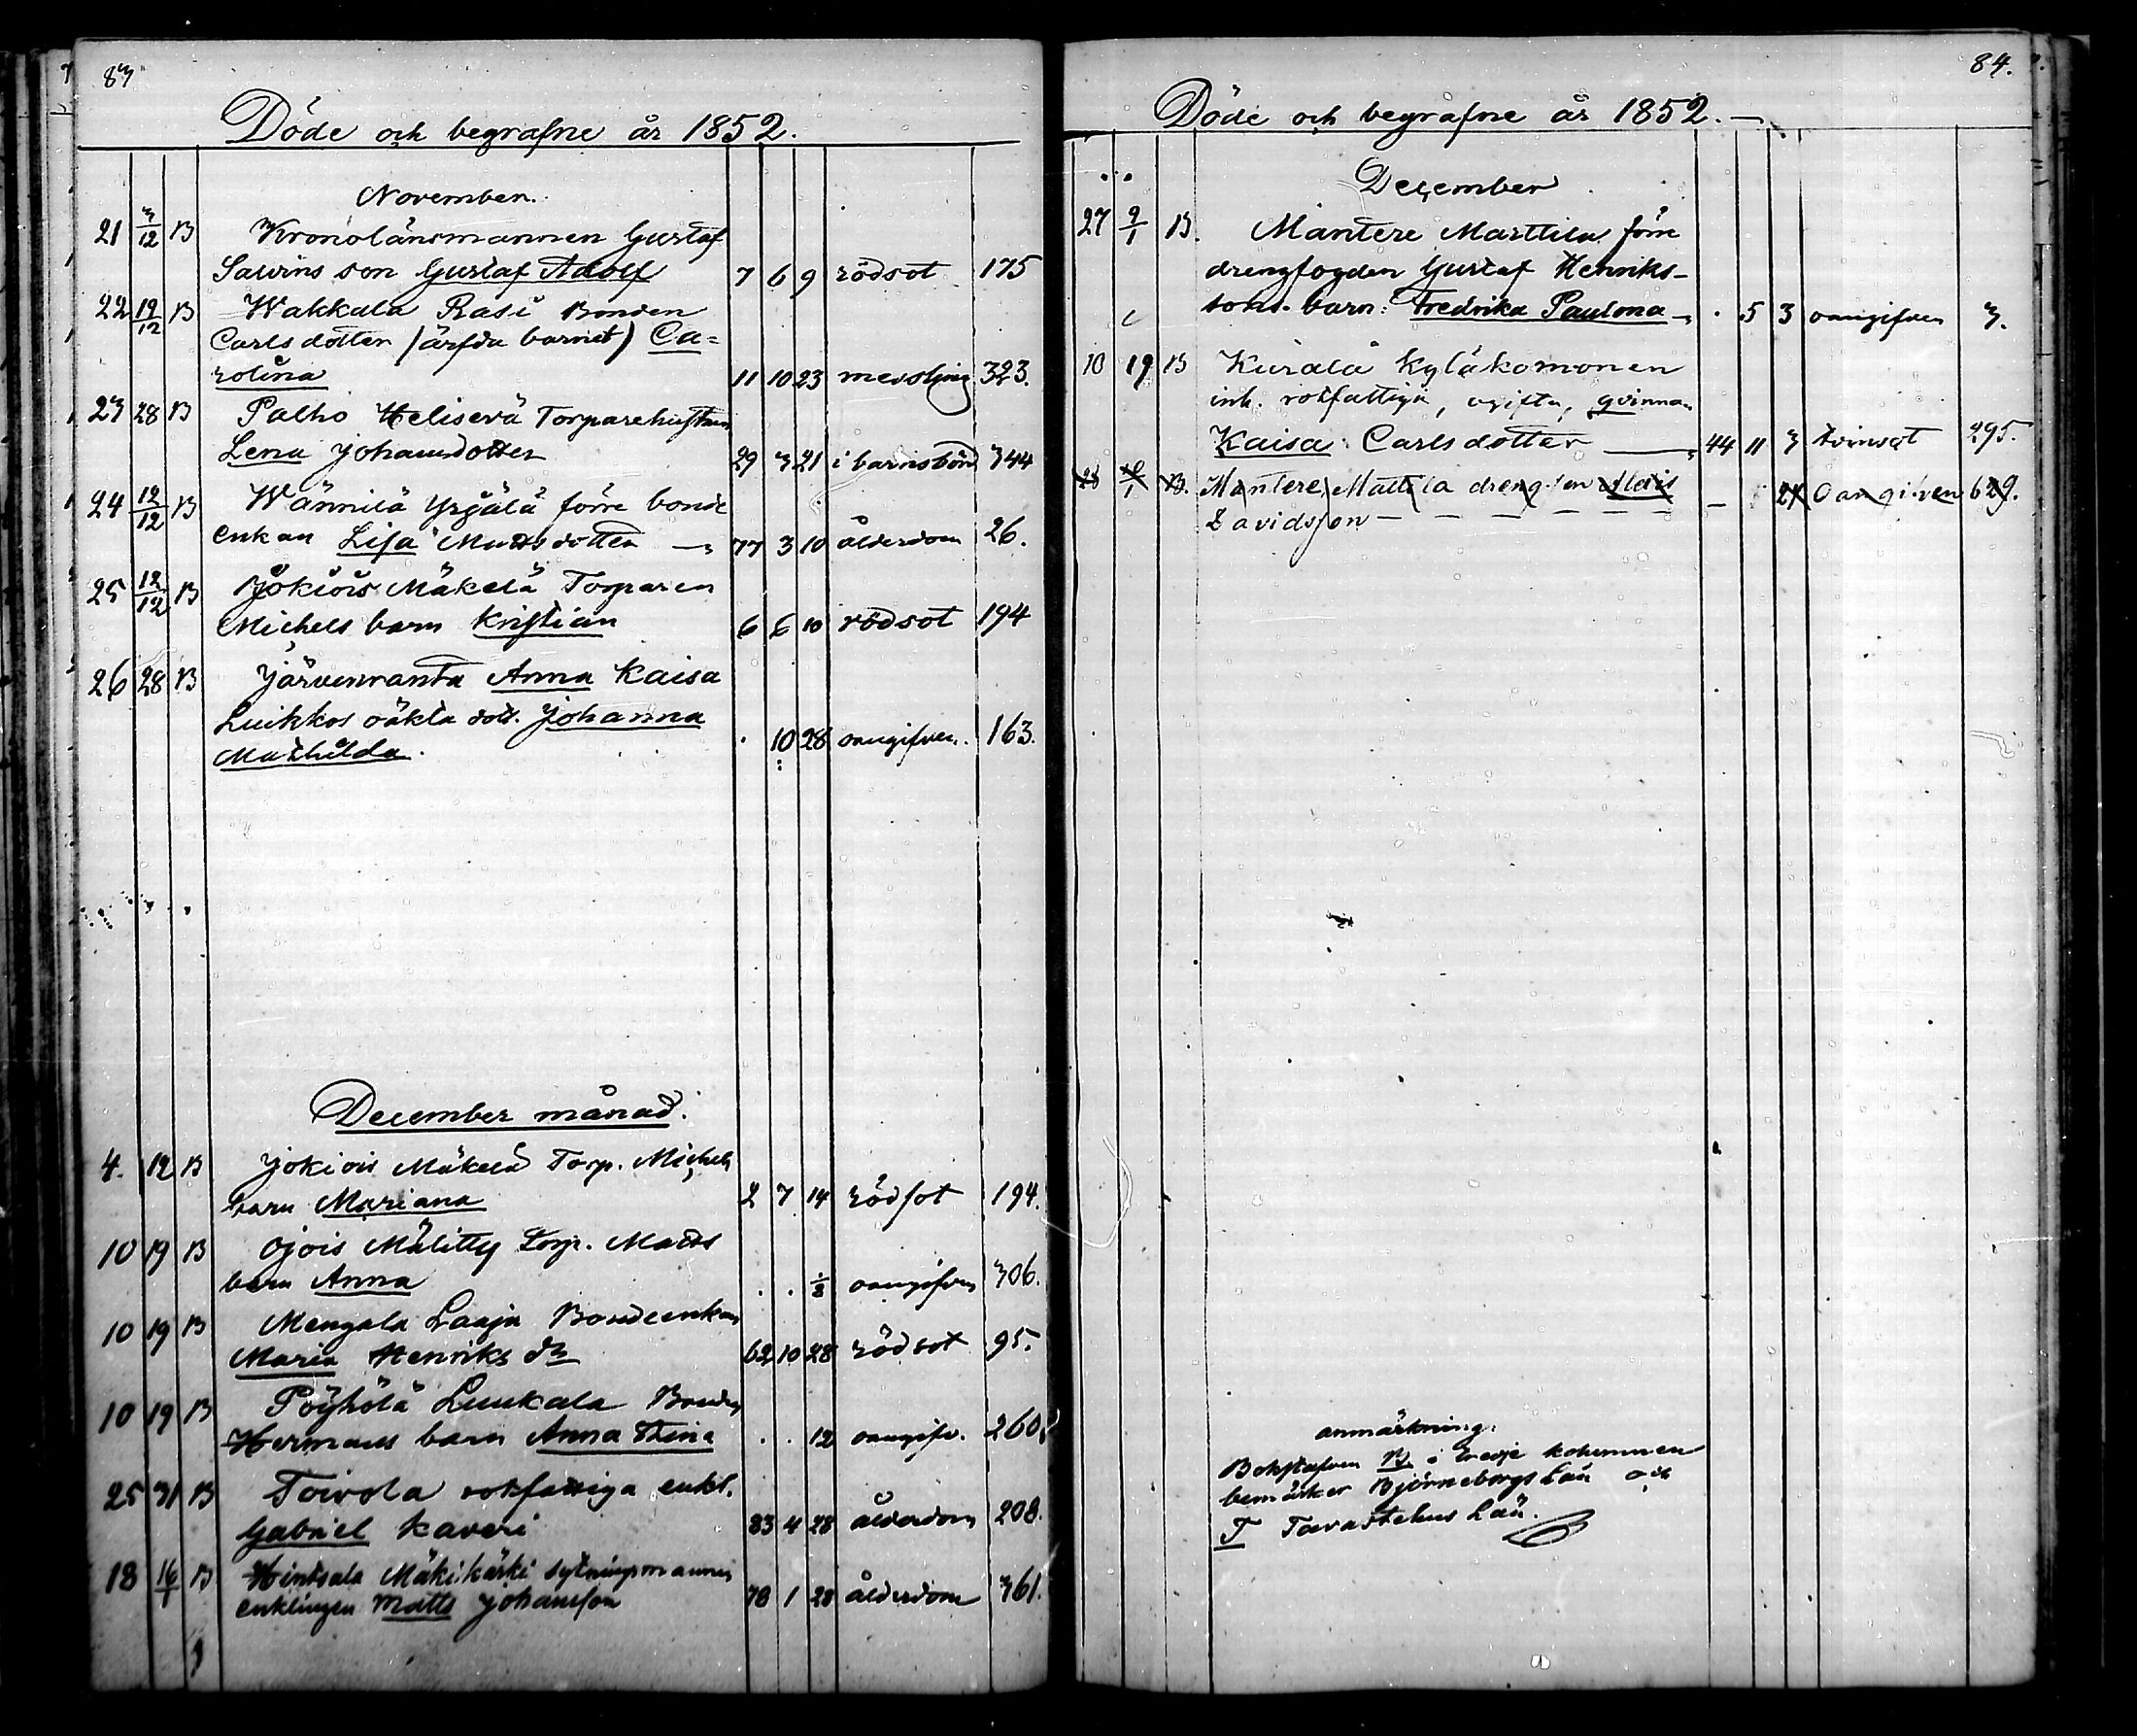 83
Döde och begrafne år 1852.
November.
21 3/12 B Kronolänsmannen Gustaf
son Gustaf Adolf 7 6 9 rödsot 175
22 19/12 B Wakkala Rasi Bonden
Carls dotter (ärfda barnet) Ca=
rolina 11 10 23 323.
23 28 B Palho Heliservä Torparehustrun
Lena Johansdotter 29 3 21 i barnsbörd 344
24 12/12 B Wännilä Yrjälä förre bonde
enkan Lisa Matts dotter 77 3 10 ålderdom 26.
25 12/12 B Jokiois Mäkelä Torparen
Michels barn Kristian 6 6 10 rödsot 194
26 28 B Järvenranta Anna Kaisa
Luikkos oäkta dott. Johanna
Mathilda. . 10 28 oangifven. 163.
December månad.
4. 12 B Jokiois Mäkelä Torp. Michels
barn Mariana 2 7 14 rödsot 194.
10 19 B Ojois Mälitty Torp. Matts
barn Anna . . 1/2 oangifven 306.
10 19 B Mengala Laaja Bondeenkan
Maria Henriks dr 62 10 28 rödsot 95.
10 19 B Pöyhölä Luukala Bonden
Hermans barn Anna Stina . . 12 oangifv. 260.
25 31 B Toivola rotfattiga enkl.
Gabriel Kaveri 83 4 28 ålderdom 208.
18 16/1 B Hintsala Mäkikärki sytningsmannen
enklingen Matts Johansson 78 1 28 ålderdom 361.
84.
Döde och begrafne år 1852.
December
27 9/1 B. Mantere Marttila förre
drengfogden Gustaf Henriks-
sons barn: Fredrika Paulina . 5 3 oangifven 3.
10 19 B Kurala Kyläkomonen
inh. rotfattiga, ogifta, qvinnan
Kaisa Carls dotter 44 11 3 tvinsot 295.
B. Mantere Mattila drengen
Davidson - - 24 Oangifven 629.
anmärkning.
Bokstafven B i tredje kolumnen
bemärker Björneborgs Län och
T Tavastehus Län.